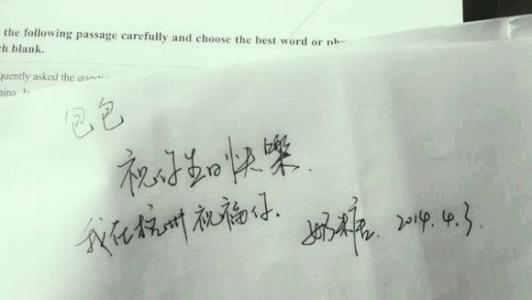 the following passage carefully and choose the best word or
blank.
quently asked the
包包
祝你生日快樂.
我在杭州祝福你.
奶糖. 2014.4.3.